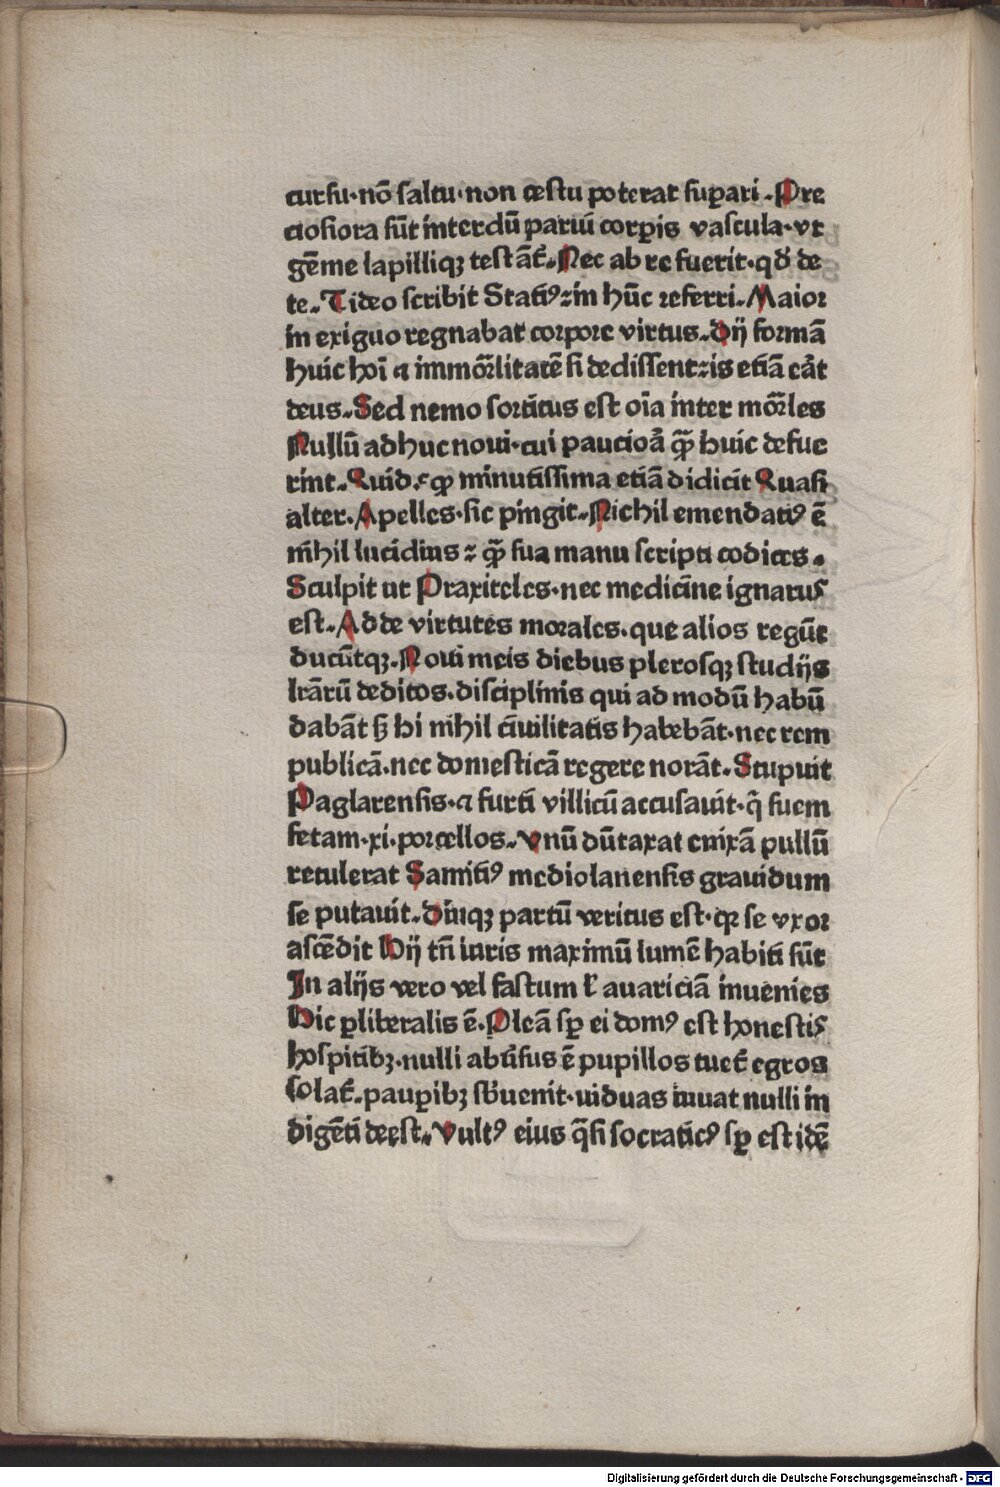 cursu·nō saltu·non cestu poterat sup̱ari·Pre
ciosiora sūt interdū pariū corp̱is vascula·vt
gēme lapilliqꝫ testāt̄·Nec ab re fuerit·qd̄ de
te·Tideo scribit Statiꝰ⁊in hūc referri·Maior
in exiguo regnabat corpore virtus·Dij formā
huic hoi̅ ⁊ immor̄litatē si dedissent⁊is etiā eāt
deus·Sed nemo sortitus est oi̅a inter mor̄les
Nullū adhuc noui·cui paucioā qꝫ̄ huic defue
rint·Quid·⁊ꝙ minutissima etiā didicit Quasi
alter·Apelles·sic pingit·Nichil emendatiꝰ ē
nīhil lucidius ⁊ ꝙ̄ sua manu scripti codices·
Sculpit ut Praxiteles·nec medicīne ignarus
est·Adde virtutes morales·que alios regūt
ducūtqꝫ·Noui meis diebus plerosqꝫ studijs
lrārū deditos·disciplinis qui ad modū habū
dabāt sꝫ hi nīhil ciuilitatis habebāt·nec rem
publicā·nec domesticā regere norāt·Stupuit
Paglarensis·⁊ furti villicū accusauit·q̄ suem
fetam·xi·porcellos·Vnū dūtaxat enixā pullū
retulerat Samitiꝰ mediolanensis grauidum
se putauit·Diuqꝫ partū veritus est·qꝛ se vxor
ascēdit Hij tn̄ iuris maximū lumē habiti sūt
In alijs vero vel fastum ł auariciā inuenies
Hic ꝑliberalis ē·Plēa sꝑ ei domꝰ est honestis
hospitibꝫ·nulli abūsus ē pupillos tuet̄ egros
solat̄·paup̱ibꝫ sb̄uenit·uiduas iuuat nulli in
digēti deest·Vultꝰ eius q̄si socraticꝰ sꝑ est idē
Digitalisierung gefördert durch die Deutsche Forschungsgemeinschaft - DFG